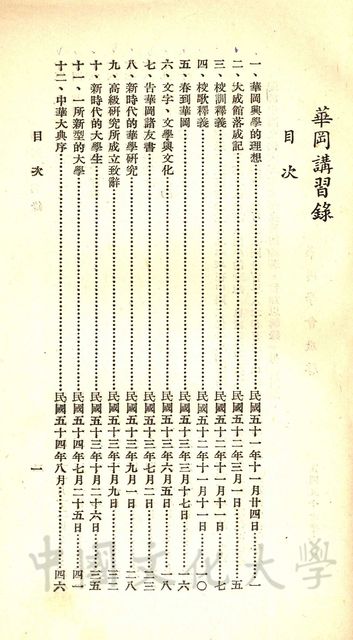 華岡講習錄
目次
一、華岡興學的理想……………民國五十一年十一月廿四日……一
二、大成館落成記……………民國五十二年三月一日……五
三、校訓釋義……………民國五十二年十一月十一日……七
四、校歌釋義……………民國五十二年十一月十一日……一〇
五、春到華岡……………民國五十三年三月十七日……一六
六、文字、文學與文化……………民國五十三年六月五日……一八
七、告華岡諸友書……………民國五十三年七月二日……二三
八、新時代的華學研究……………民國五十三年九月一日……二八
九、高級研究所成立致辭……………民國五十三年十月九日……三三
十、新時代的大學生……………民國五十三年十月二十六日……三五
十一、一所新型的大學……………民國五十四年七月二十五日……四一
十二、中華大典序……………民國五十四年八月……四六
目次
一
中國文化大學